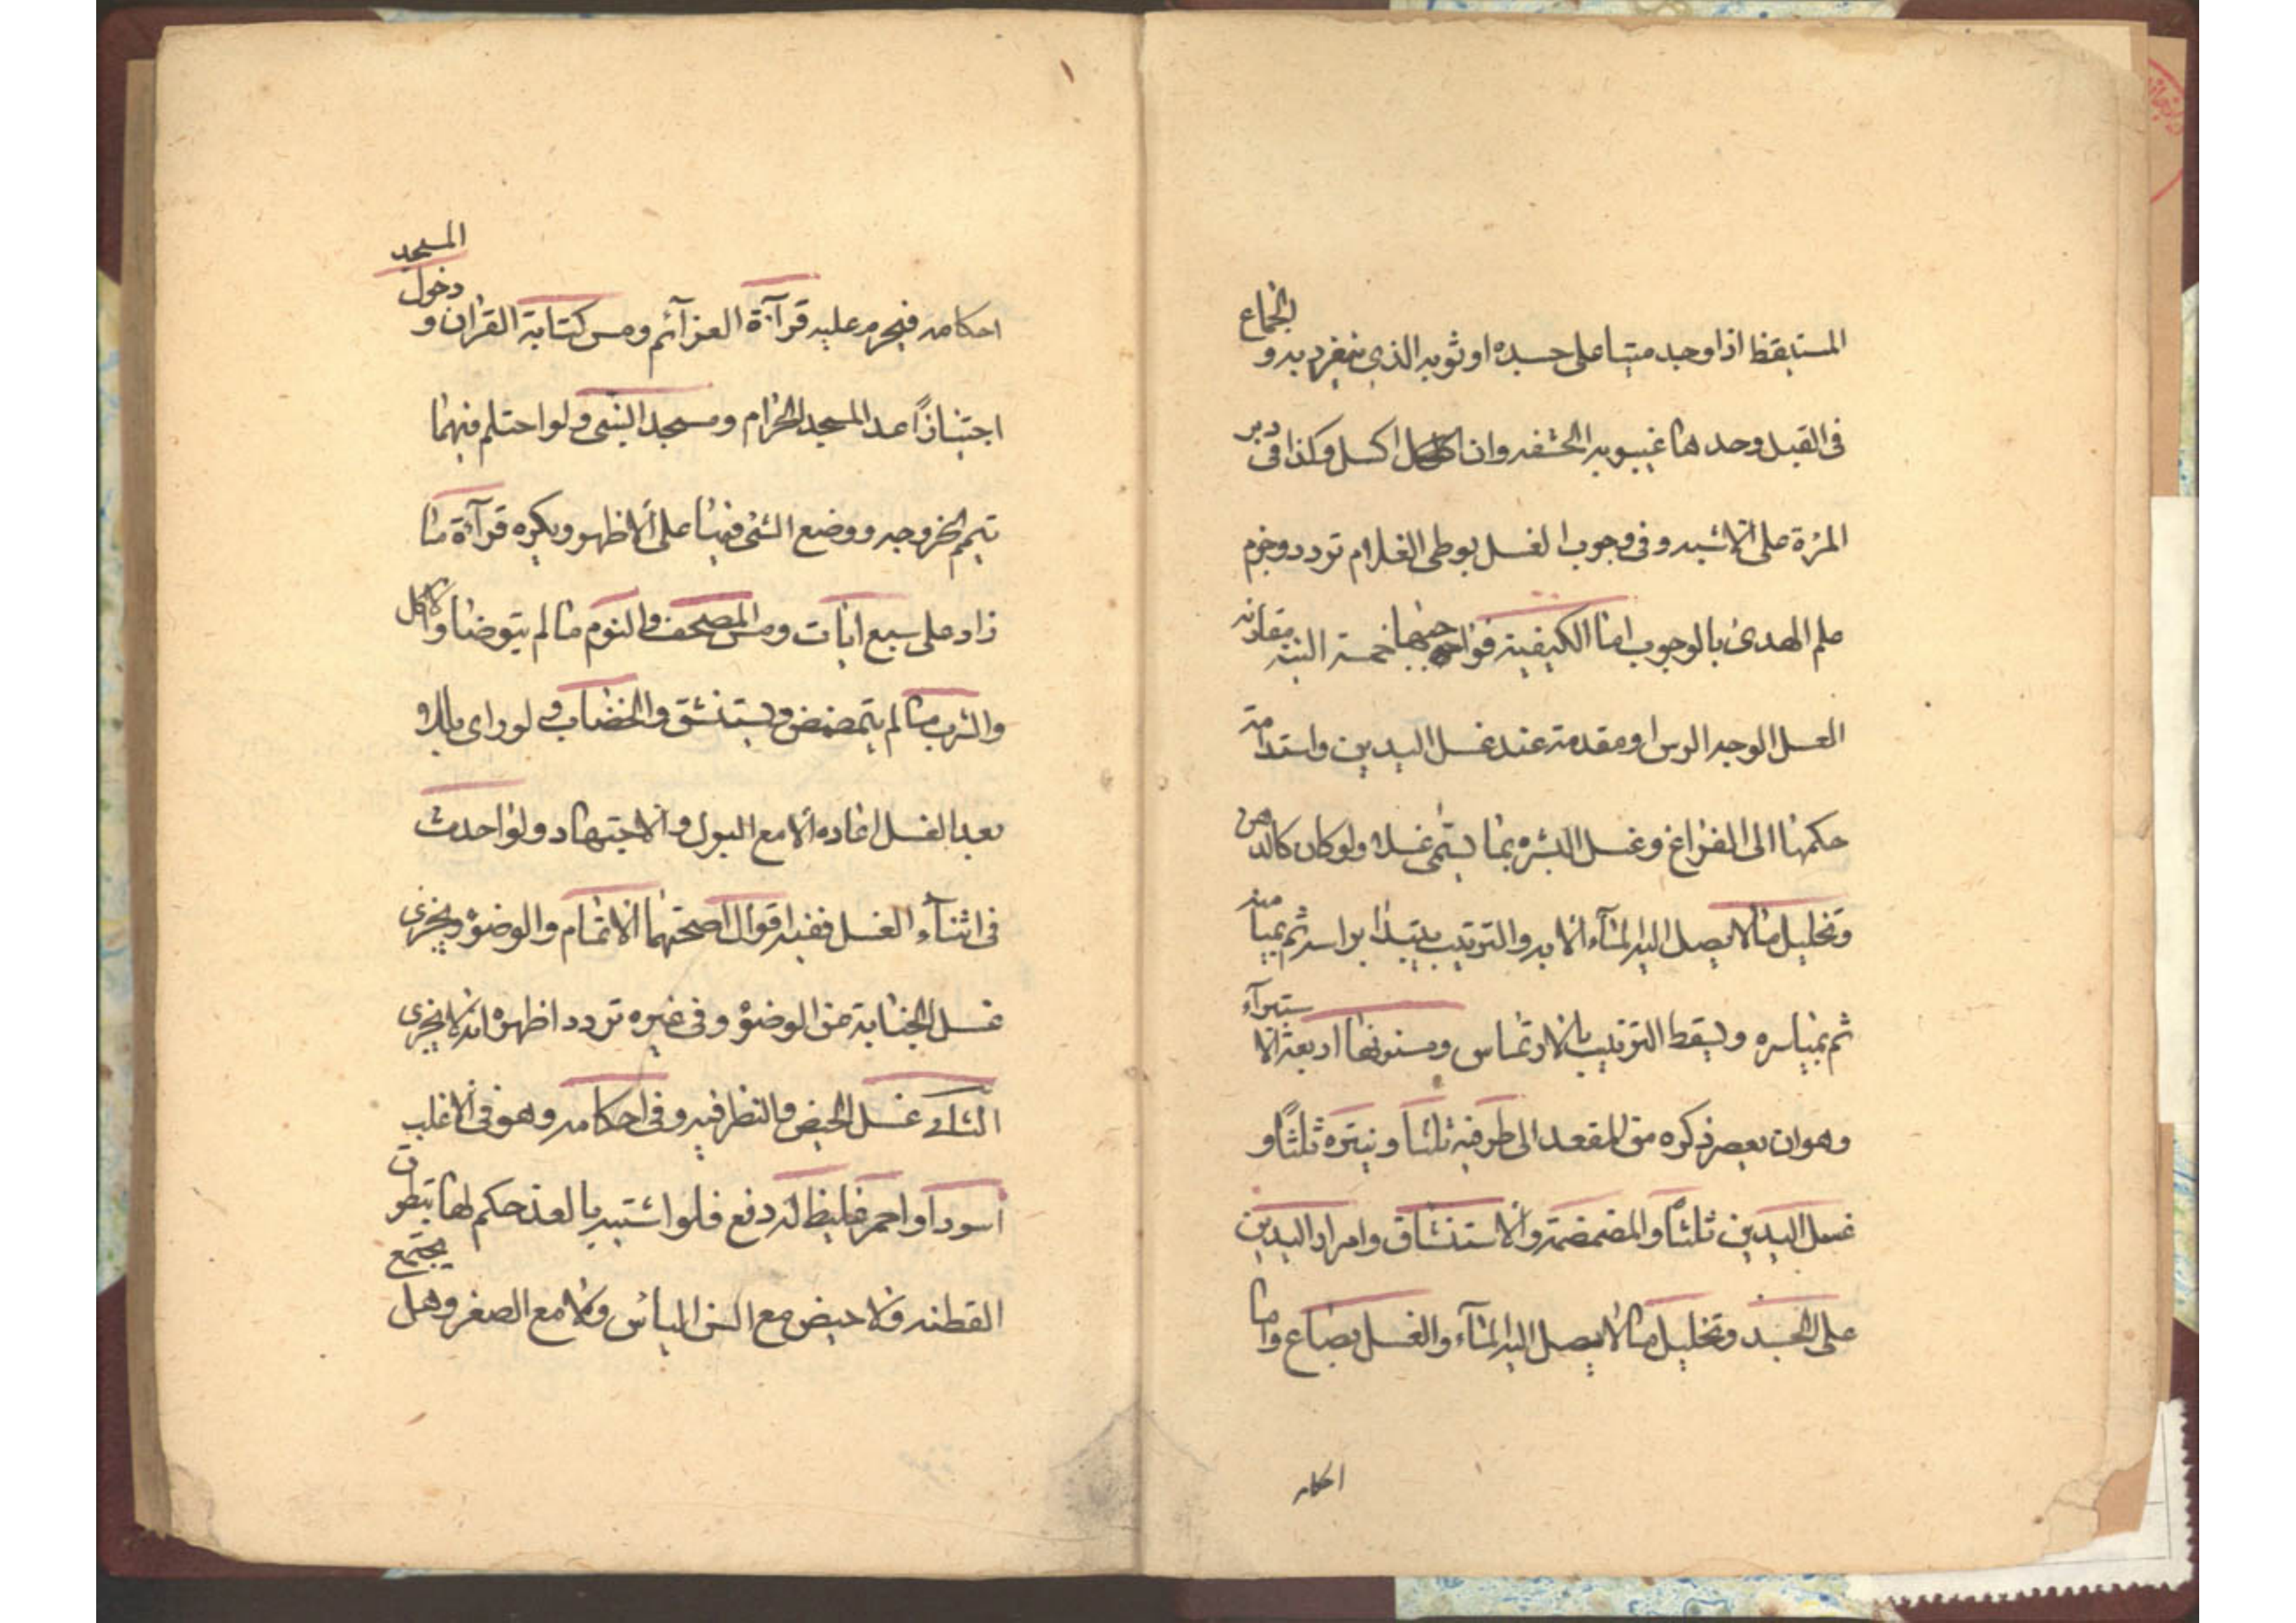 المستيقظ اذا وجد منيا على جسده او ثوبه الذي ينفرد به و الجماع
فى القبل وحدها غيبوبه الحشفه وان اكسل وكذا فى دبر
المرٔة على الاشبه و فى وجوب الغسل بوطى الغلام تردد وجزم
علم الهدى بالوجوب اما الكيفية فواجبها خمسة النية مقارنة
لغسل الوجه الرس او مقدمة عند غسل اليدين واستدامة
حكمها الى الفراغ وغسل البشره بما يسمى غسلا ولو كان كالدهن
وتخليل ما لا يصل اليه المآء الا به والترتيب يبتدٔا براسه ثم بميامنه
ثم بمياسره ويسقط الترتيب بالارتماس ومسنونها اربعة الاستبرآء
وهو ان يعصر ذكره من المقعد الى طرفيه ثلثا و ينتره ثلثا و
غسل اليدين ثلثا والمضمضة والاستنشاق وامرار اليدين
على الجسد وتخليل ما لا يصل اليه المآء والغسل بصاع واما
احكامه
احكامه فيحرم عليه قرآءة العزآئم ومس كتابة القران و دخول المسجد
اجتيازًا عدا المسجد الحرام ومسجد النبى ولو احتلم فيهما
تيمم لخروجه ووضع الشئ فيها على الاظهر ويكره قرآءة ما
زاد على سبع ايات ومس المصحف والنوم ما لم يتوضا والاكل
والشرب ما لم يتمضمض ويستنشق والخضاب و لو راى بللا
بعد الغسل اعاده الا مع البول والاجتهاد ولو احدث
فى اثنآء الغسل ففيه اقوال اصحهما الاتمام والوضوء ويجزى
غسل الجنابة عن الوضوء وفى غيره تردد اظهره انه لا يجزى
الثانى غسل الحيض والنظر فيه وفى احكامه وهو فى الاغلب
اسود او احمر غليظ له دفع فلو اشتبه بالعذرة حكم لها بتطوق
القطنه ولا حيض مع السن الياس ولا مع الصغر وهل يجتمع